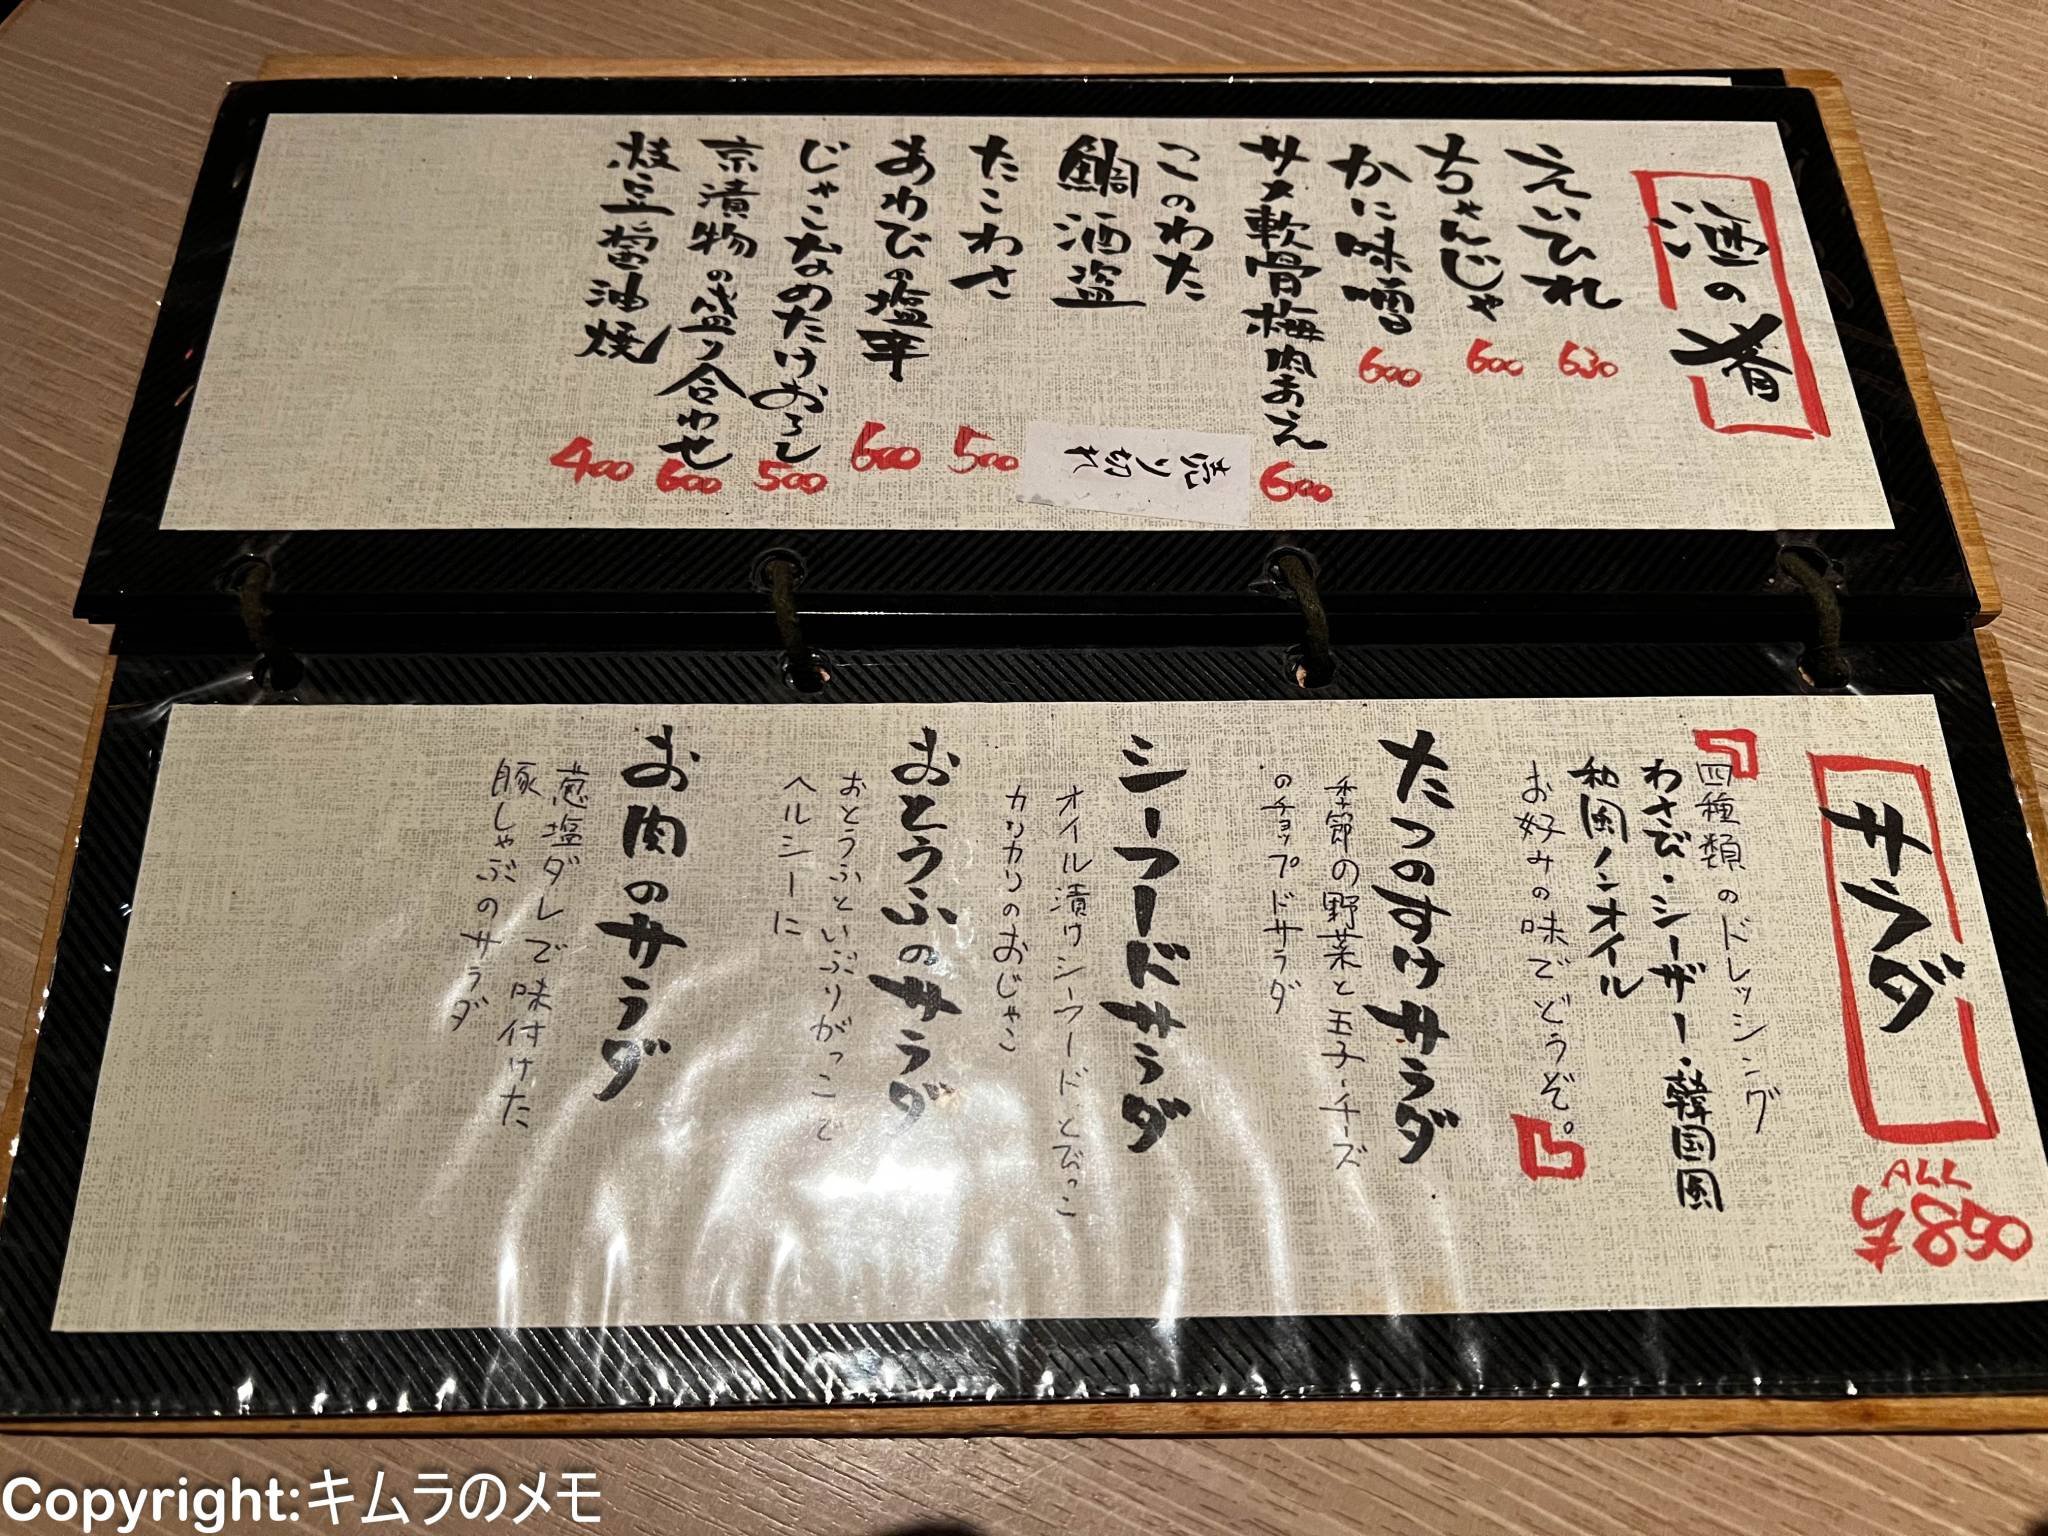 酒の肴
えいひれ 630
ちゃんじゃ 600
かに味噌 600
サメ軟骨梅肉あえ 600
このわた
鯛酒盗
売り切れ
たこわさ 500
あわびの塩辛 600
じゃこなめたけおろし 500
京漬物の盛り合わせ 600
枝豆醤油焼 400
サラダ
ALL
850
『四種類のドレッシング
わさび・シーザー・韓国風
和風ノンオイル
お好みの味でどうぞ。』
たつのすけサラダ
季節の野菜と玉子・チーズ
のチョップドサラダ
シーフードサラダ
オイル漬けシーフードとびっこ
カリカリのおじゃこ
おとうふのサラダ
おとうふといぶりがっこで
ヘルシーに
お肉のサラダ
葱塩ダレで味付けた
豚しゃぶのサラダ
Copyright:キムラのメモ